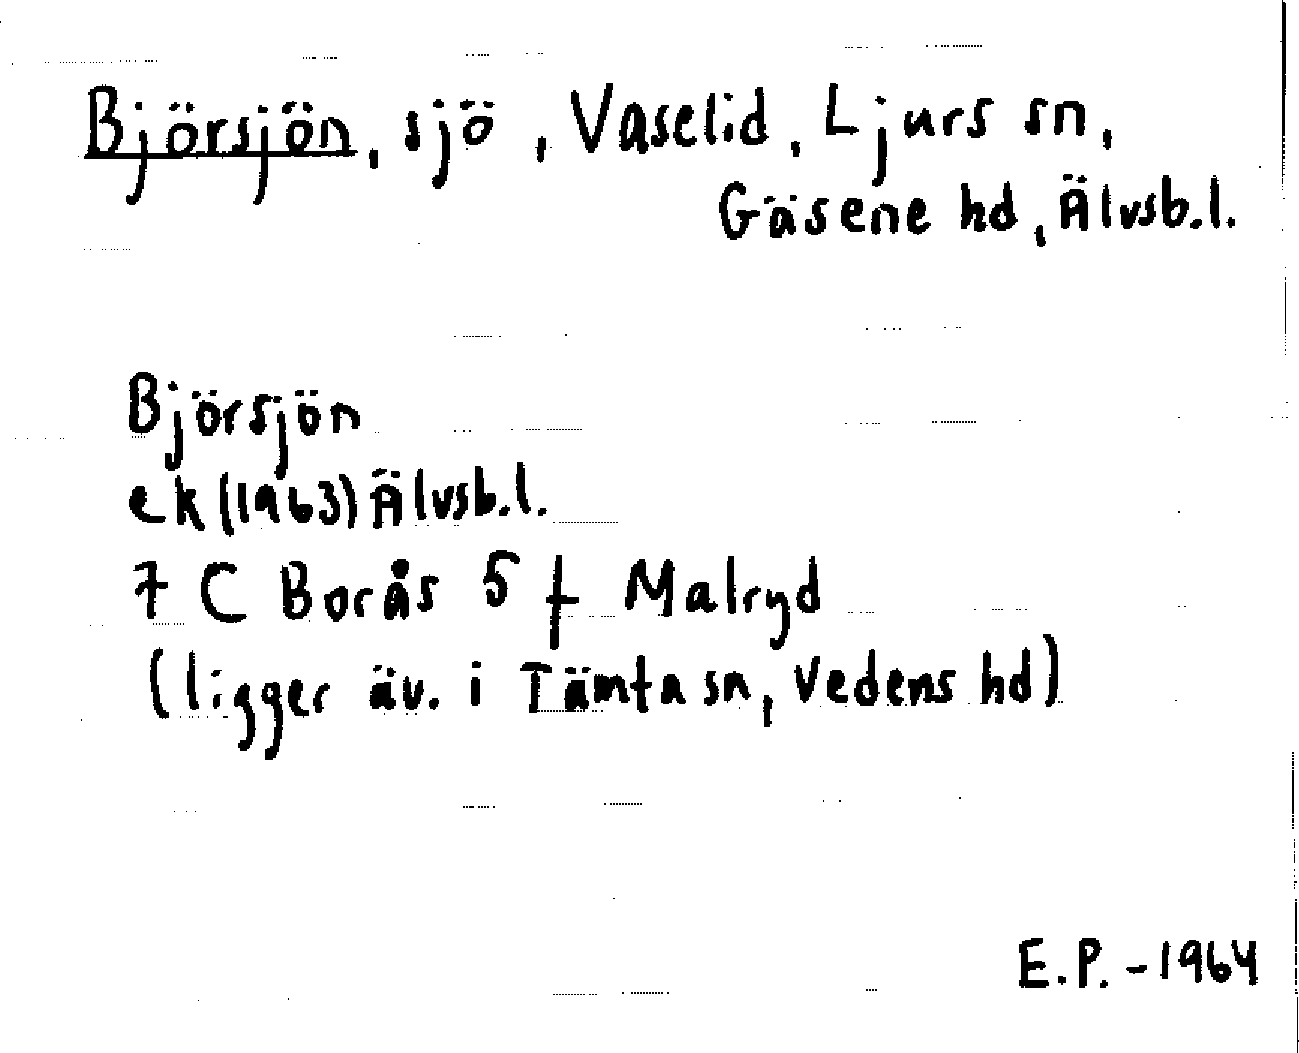 Björsjön, sjö, Vaselid, Ljurs sn,
Gäsene hd, Älvsb.l.
Björsjön
ek (1963) Älvsb.l.
7 C Borås 5 f Malryd
(ligger äv. i Tämta sn, Vedens hd)
E.P. - 1964